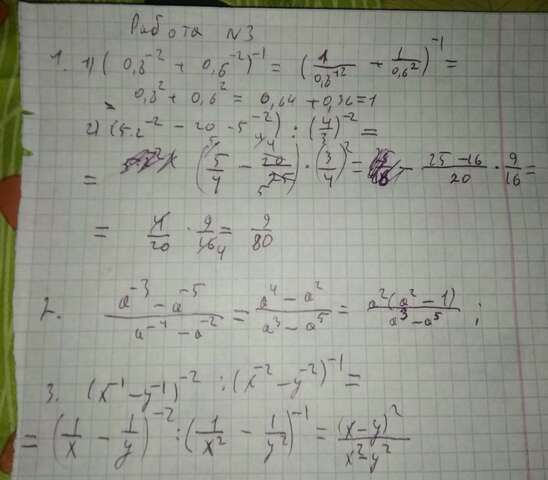 Работа N3
1. 1) (0,8⁻² + 0,6⁻²)⁻¹ = (1/0,8² + 1/0,6²)⁻¹ =
0,8² + 0,6² = 0,64 + 0,36 = 1
2) (5·2⁻² − 20·5⁻²) : (4/3)⁻² =
= (5/4 − 20/25) · (3/4)² = − 25−16/20 · 9/16 =
= 9/20 · 9/16 = 9/80
2. a⁻³ − a⁻⁵/a⁻⁴ − a⁻² = a⁴ − a²/a³ − a⁵ = a²(a² − 1)/a³ − a⁵ ;
3. (x⁻¹ − y⁻¹)⁻² : (x⁻² − y⁻²)⁻¹ =
= (1/x − 1/y)⁻² : (1/x² − 1/y²)⁻¹ = (x − y)²/x² − y²